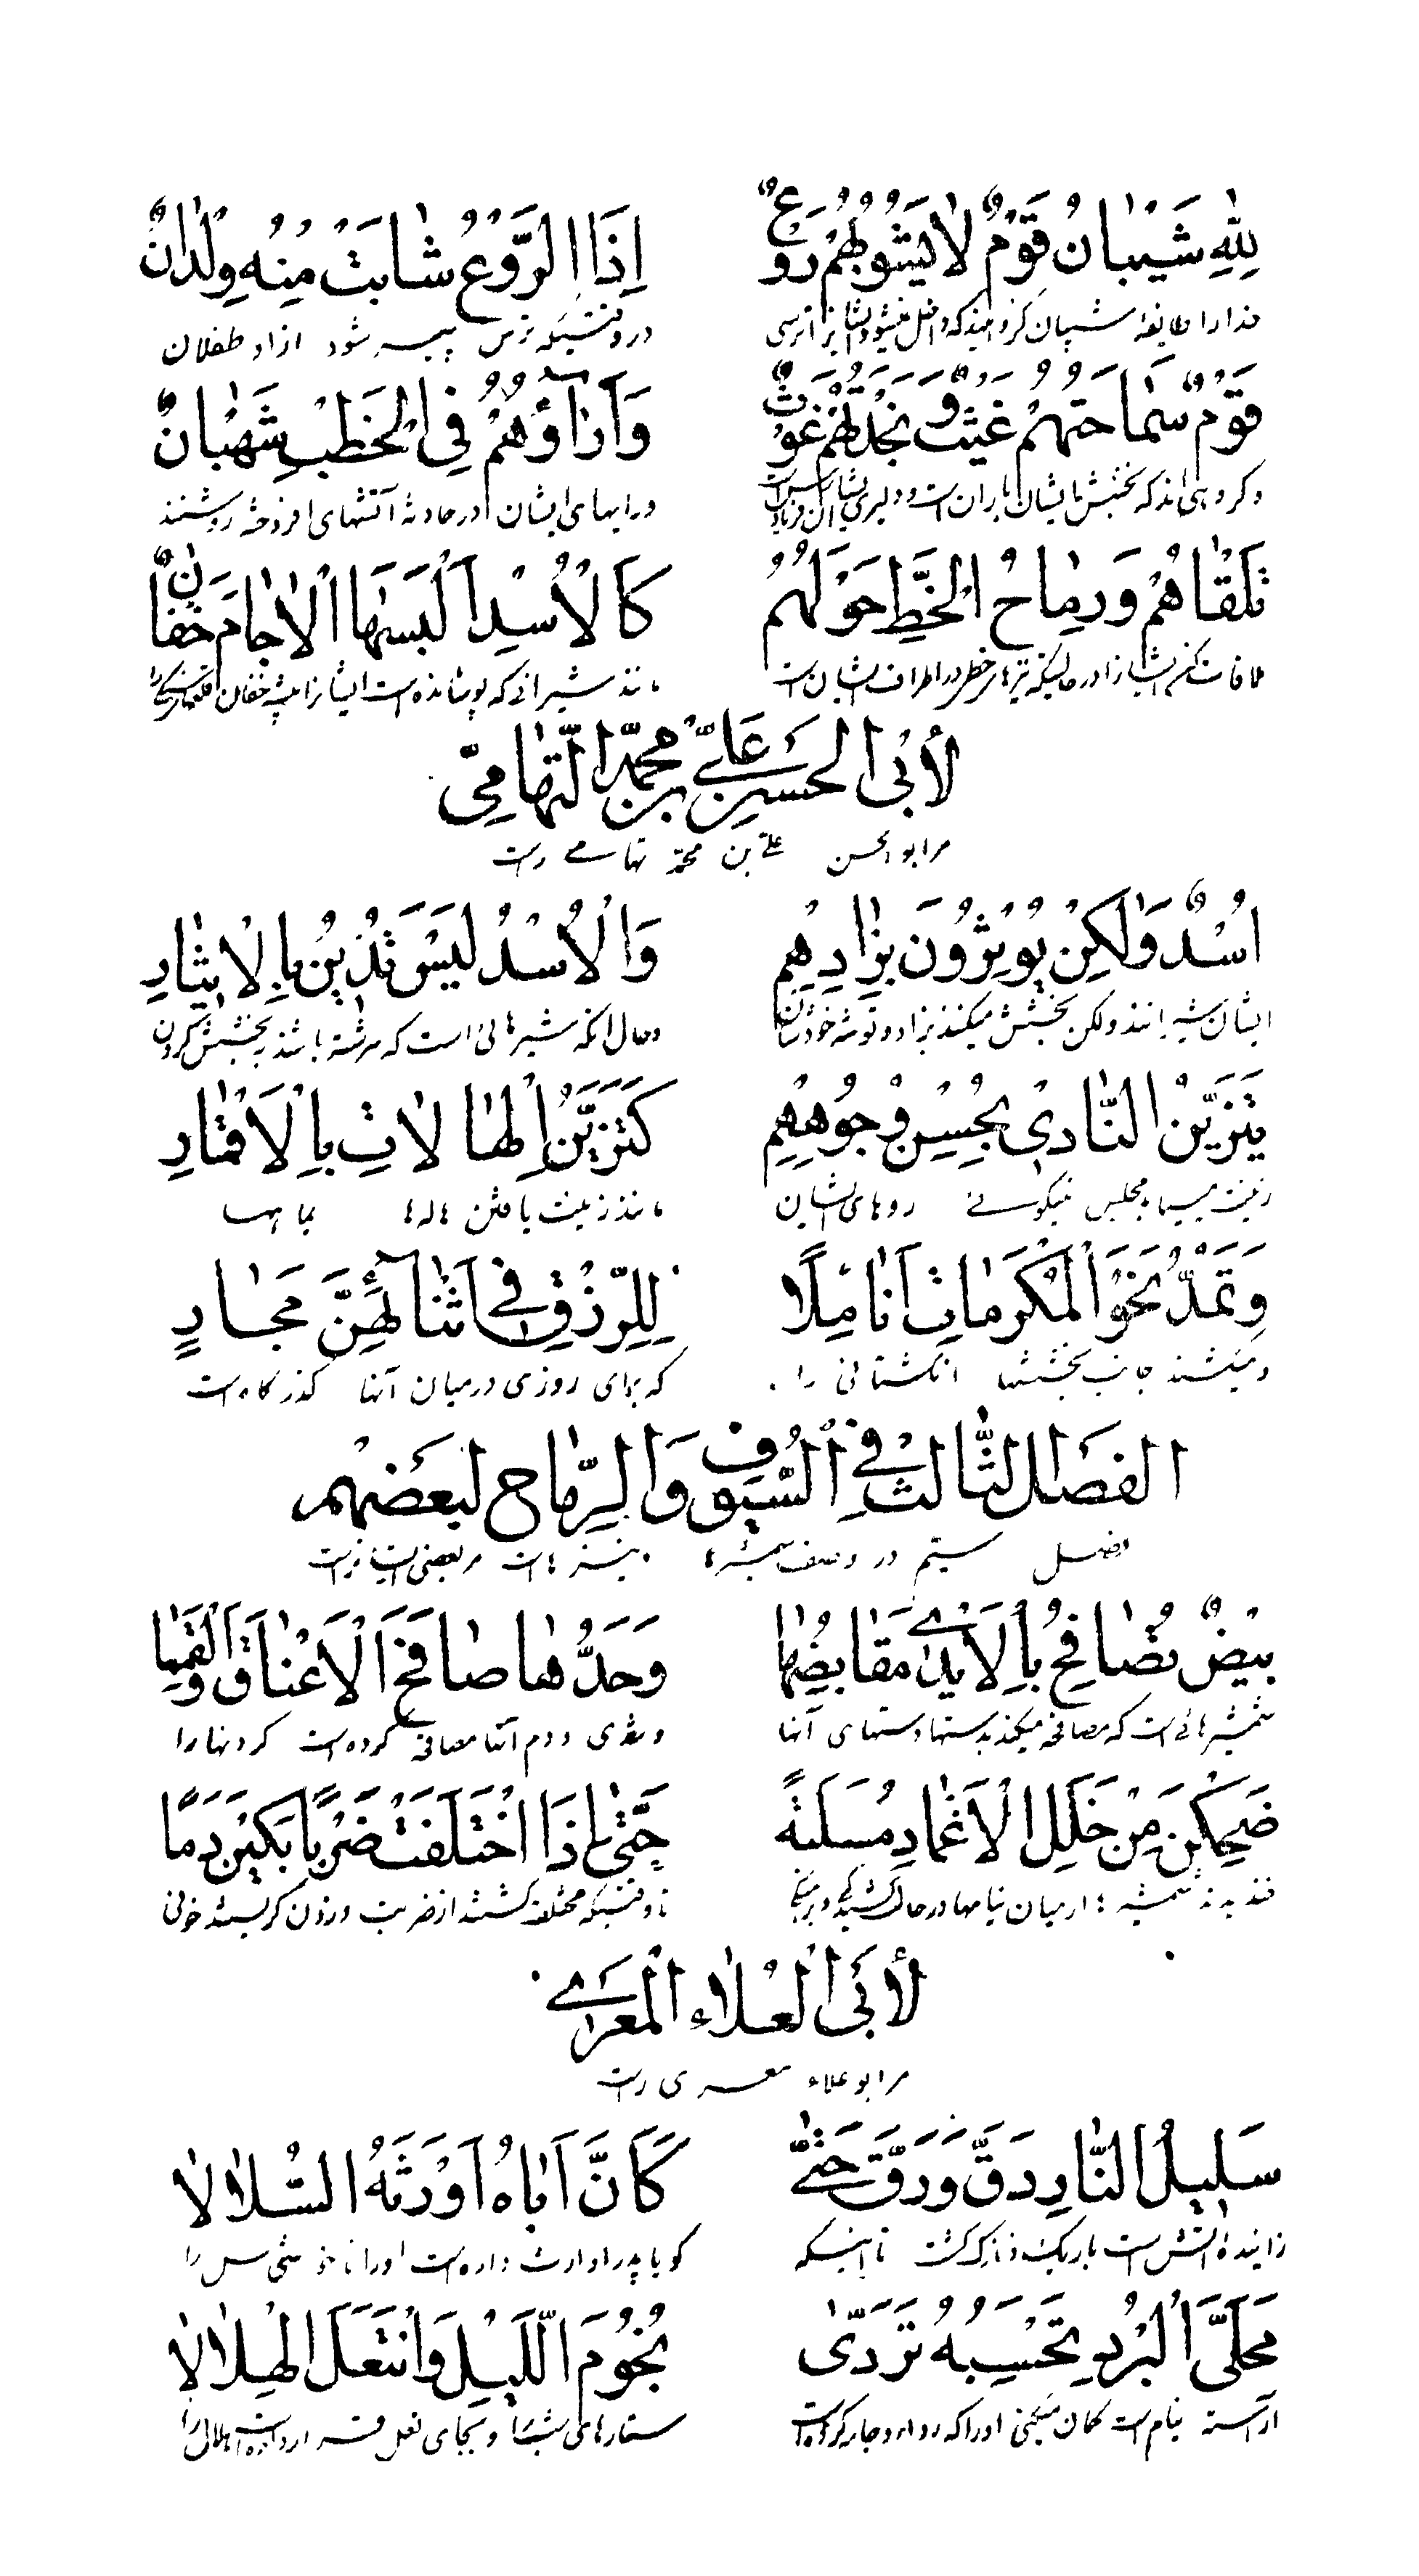 لِلّٰهِ شَیْبٰانُ قَوْمٌ لٰا یَشُوبُهُمْ رَوْعٌ اِذَا الرَّوْعُ شٰابَتْ مِنْهُ وِلْدٰانٌ
خدارا طایفهٔ شیبان گروهیند که داخل نمیشود ایشانرا ترسی در وقتیکه ترس پیر شود از او طفلان
قَوْمٌ سَمٰاحَتُهُمْ غَیْثٌ وَ نَجْدَتُهُمْ غَوْثٌ وَ آرٰاؤُهُمْ فِی الْخَطْبِ شُهْبٰانٌ
و گروهی‌اند که بخشش ایشان باران است و دلیری ایشان فریادرس است و رایهای ایشان در حادثه آتشهای افروخته روشنند
تَلْقٰاهُمْ وَ رِمٰاحُ الْخَطِّ حَوْلَهُمُ کَالْاُسْدِ اَلْبَسَهٰا الْاٰجٰامَ خَفّٰانٌ
ملاقات کنی ایشانرا در حالیکه نیزهای خطی در اطراف ایشان است مانند شیرانی که پوشانده است ایشانرا بیشه خفان
لأَبِی الْحَسَنِ عَلِیِّ بْنِ مُحَمَّدٍ التِّهٰامِیِّ
مر ابو الحسن علی بن محمد تهامی راست
اُسْدٌ وَلٰکِنْ یُوْثِرُونَ بِزٰادِهِمِ وَالْاُسْدُ لَیْسَ تَدٖینُ بِالْاٖیثٰارِ
ایشان شیرانند ولکن بخشش میکنند بزاد و توشه خودشان و حال آنکه شیرهائی است که سرشته باشند به بخشش کردن
یَتَزَیَّنُ النّٰادٖی بِحُسْنِ وُجُوْهِهِمِ کَتَزَیُّنِ الْهٰالٰاتِ بِالْاَقْمٰارِ
زینت مییابد مجلس بنیکوئی روهای ایشان مانند زینت یافتن هاله‌ها بماهها
وَ تَمُدُّ نَحْوَ الْمَکْرَمٰاتِ اَنٰامِلًا لِلرِّزْقِ فٖی اَثْنٰائِهِنَّ مَجٰارٍ
و میکشند جانب بخششها انگشتانی را که برای روزی در میان آنها گذرگاه است
الفَصْلُ الثّٰالِثُ فِی السُّیُوفِ وَالرِّمٰاحِ لِبَعْضِهِمْ
فصل سیّم در وصف شمشیرها و نیزه‌هاست مر بعضی ایشانراست
بٖیْضٌ تُصٰافِحُ بِالْاَیْدٖی مَقٰابِضُهٰا وَ حَدُّهٰا صٰافَحَ الْاَعْنٰاقَ وَالْقِمَمٰا
شمشیرهائی است که مصافحه میکند بدستها دستهای آنها و تندی و دم آنها مصافحه کرده است گردنها را
ضَحِکْنَ مِنْ خَلَلِ الْاَغْمٰادِ مُسْلَتَةً حَتّٰی اِذَا اخْتَلَفَتْ ضَرْبًا بَکَیْنَ دَمًا
خندیدند شمشیرها از میان نیامها در حال کشیدگی و برهنگی تا وقتیکه مختلف گشتند از ضربت و زدن گریستند خونی
لأَبِی الْعَلٰاءِ الْمَعَرِّی
مر ابو علاء معری راست
سَلٖیلُ النّٰارِ دَقَّ وَ رَقَّ حَتّٰی کَاَنَّ اَبٰاهُ اَوْرَثَهُ السُّلٰالٰا
زائیدهٔ آتش است باریک و نازک گشت تا اینکه گویا پدر او ارث داده است او را ناخوشی سل را
مُحَلَّی الْبُرْدِ تَحْسِبُهُ تَرَدّٰی نُجُوْمَ اللَّیْلِ وَانْتَعَلَ الْهِلٰالٰا
آراسته نیام است گمان میکنی او را که ردا و جامه کرده است ستارهای شب را و بجای نعل قرار داده است هلال را